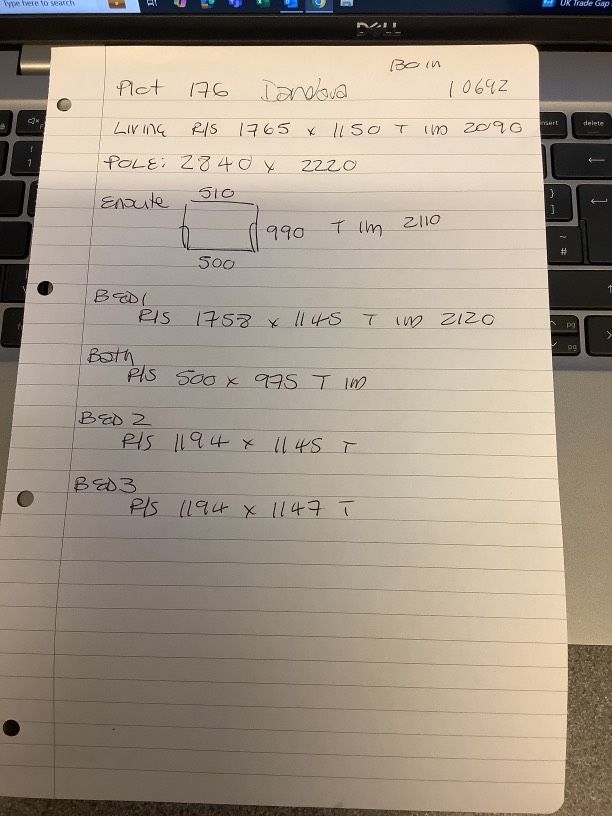 Type here to search
UK Trade Gap
DELL
130 in
Plot 176 10692
LIVING R/S 1765 x 1150 T 1m 2090
POLE: 2840 x 2220
510
Ensuite 990 T 1m 2110
500
BED1
R/S 1758 x 1145 T 1m 2120
Bath
R/S 500 x 975 T 1m
BED 2
R/S 1194 x 1145 T
BED3
R/S 1194 x 1147 T
insert
delete
pg
pg